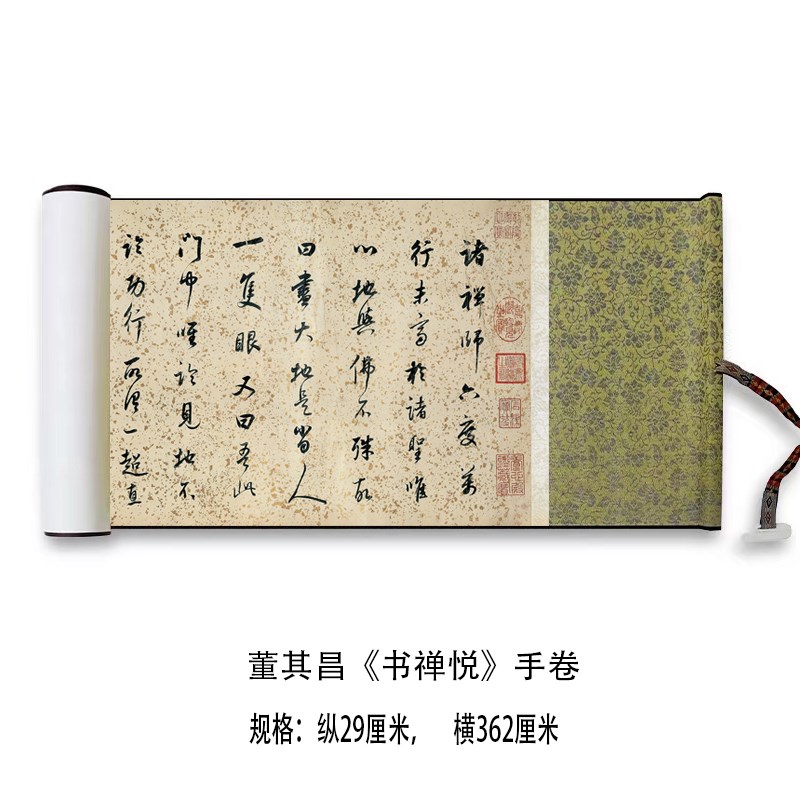 諸禪師六度萬
行未高於諸聖唯
心地與佛不殊故
曰盡大地是當人
一隻眼又曰吾此
門中唯論見地不
論功行所謂一超直
董其昌《书禅悦》手卷
规格：纵29厘米， 横362厘米